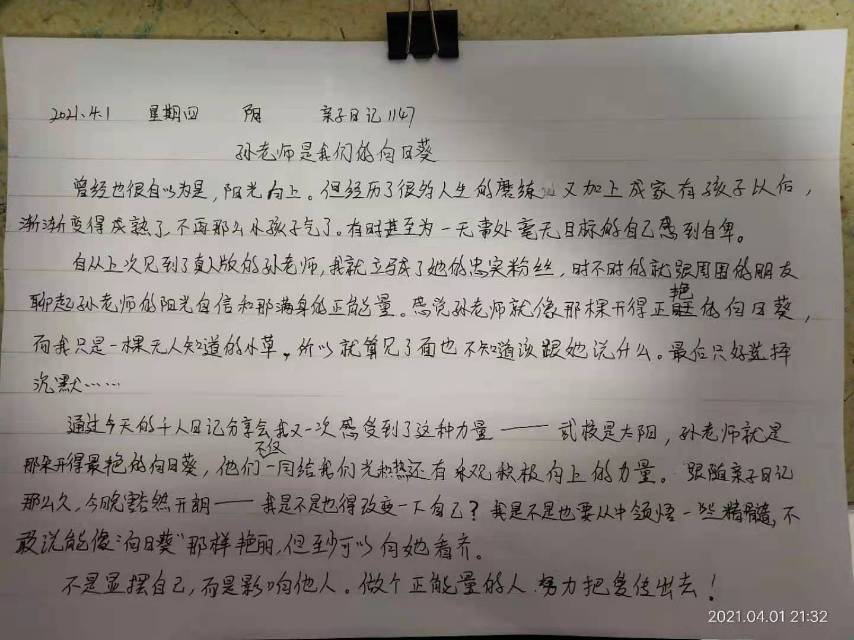 2021.4.1 星期四 阴 亲子日记1147
孙老师是我们的向日葵
曾经也很自以为是,阳光向上。但经历了很多人生的磨练 又加上成家有孩子以后,
渐渐变得成熟了,不再那么小孩子气了。有时甚至为一无事处毫无目标的自己感到自卑。
自从上次见到了真人版的孙老师,我就立马成了她的忠实粉丝,时不时的就跟周围的朋友
聊起孙老师的阳光自信和那满身的正能量。总说孙老师就像那棵开得正艳的向日葵,
而我只是一棵无人知道的小草。所以就算见了面也不知道该跟她说什么。最后只好选择
沉默……
通过今天的千人日记分享会我又一次感受到了这种力量——武校是太阳,孙老师就是
那朵开得最艳的向日葵,他们不仅一同给我们光和热还有乐观积极向上的力量。跟随亲子日记
那么久,今晚豁然开朗——我是不是也得改变一下自己?我是不是也要从中领悟一些精髓,不
敢说能像“向日葵”那样艳丽,但至少可以向她看齐。
不是显摆自己,而是影响他人。做个正能量的人.努力把爱传出去!
2021.04.01 21:32